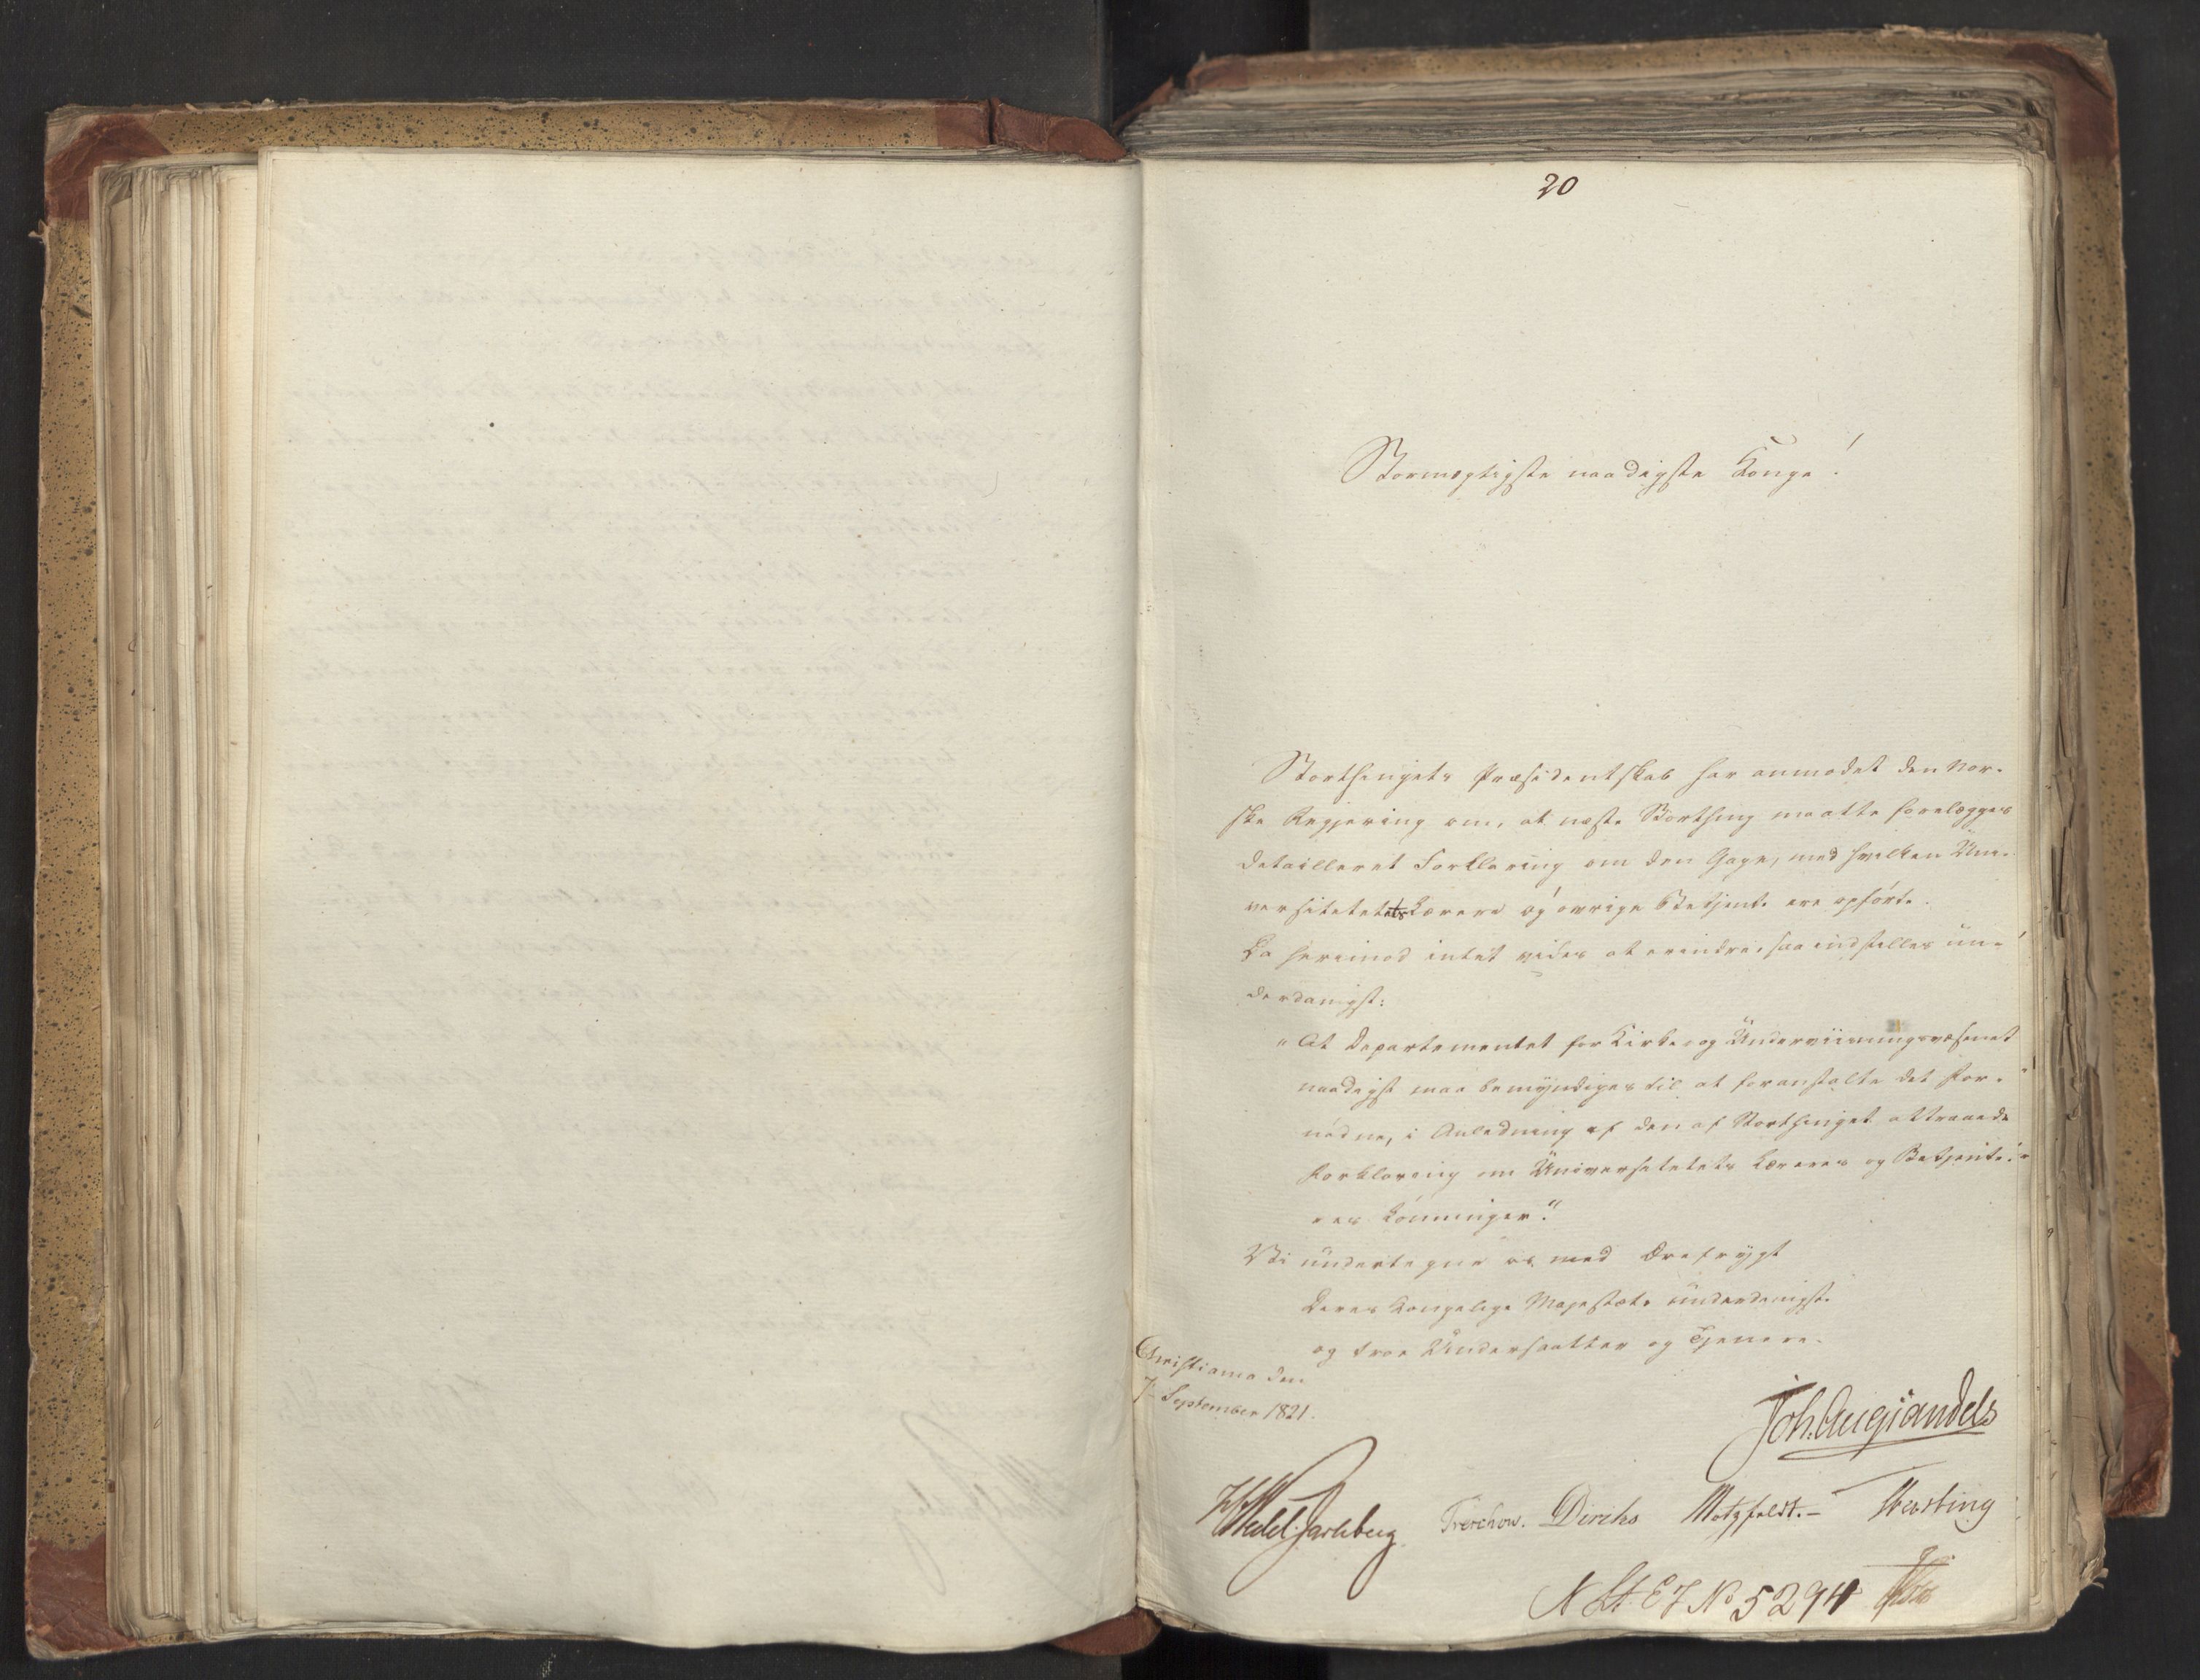 20
Stormægtigste naadigste Konge!
Storthingets Præsidentskab har anmodet den Nor-
ske Regjering om, at næste Storthing maatte forelægges
detailleret Forklaring om den Gage, med hvilken Uni-
versitetets Lærere og øvrige Betjente ere opførte.
Da herimod intet vides at erindre, saa indstilles un-
derdanigst:
"At Departementet for Kirke- og Underviisningsvæsenet
naadigst maa bemyndiges til at foranstalte det For-
nødne, i Anledning af den af Storthinget attraaede
Forklaring om Universitetets Læreres og Betjente-
res Lønninger".
Vi undertegne os med Ærefrygt
Deres Kongelige Majestæts underdanigste
og troe Undersaatter og Tjenere.
Christiania den
7 September 1821.
Joh. Aug. Sandels
HWedel Jarlsberg Treschow. Diriks Motzfeldt.-
N St E J No 5294